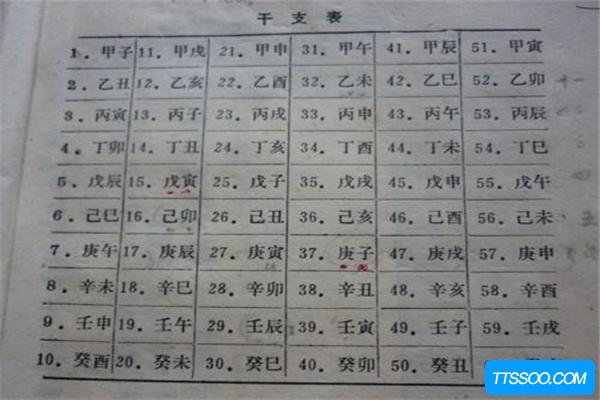 干支表
1．甲子 11．甲戌 21．甲申 31．甲午 41．甲辰 51．甲寅
2．乙丑 12．乙亥 22．乙酉 32．乙未 42．乙巳 52．乙卯
3．丙寅 13．丙子 23．丙戌 33．丙申 43．丙午 53．丙辰
4．丁卯 14．丁丑 24．丁亥 34．丁酉 44．丁未 54．丁巳
5．戊辰 15．戊寅 25．戊子 35．戊戌 45．戊申 55．戊午
6．己巳 16．己卯 26．己丑 36．己亥 46．己酉 56．己未
7．庚午 17．庚辰 27．庚寅 37．庚子 47．庚戌 57．庚申
8．辛未 18．辛巳 28．辛卯 38．辛丑 48．辛亥 58．辛酉
9．壬申 19．壬午 29．壬辰 39．壬寅 49．壬子 59．壬戌
10．癸酉 20．癸未 30．癸巳 40．癸卯 50．癸丑
TTSSOO.COM